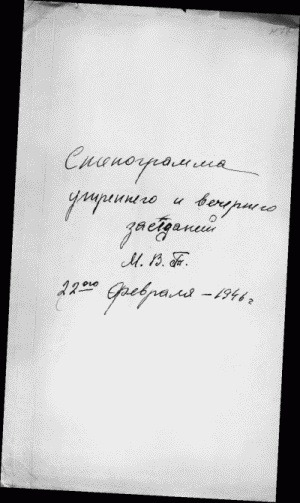 Стенограмма
утреннего и вечернего
заседаний
М. В. Т.
22ого февраля – 1946 г